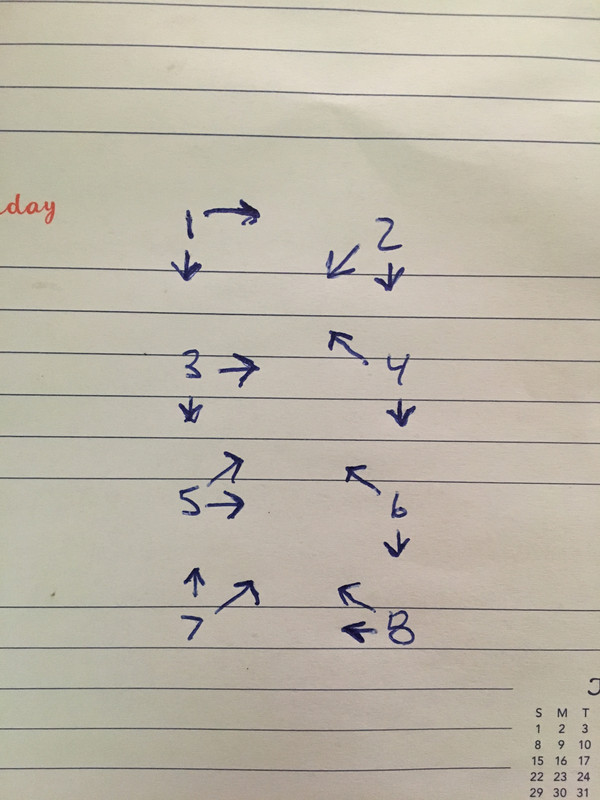 day
1 → 2
↓ ↙ ↓
↖
3 → 4
↓ ↓
↗ ↖
5 → 6
↓
↑ ↗ ↖
7 ← 8
S M T
1 2 3
8 9 10
15 16 17
22 23 24
29 30 31